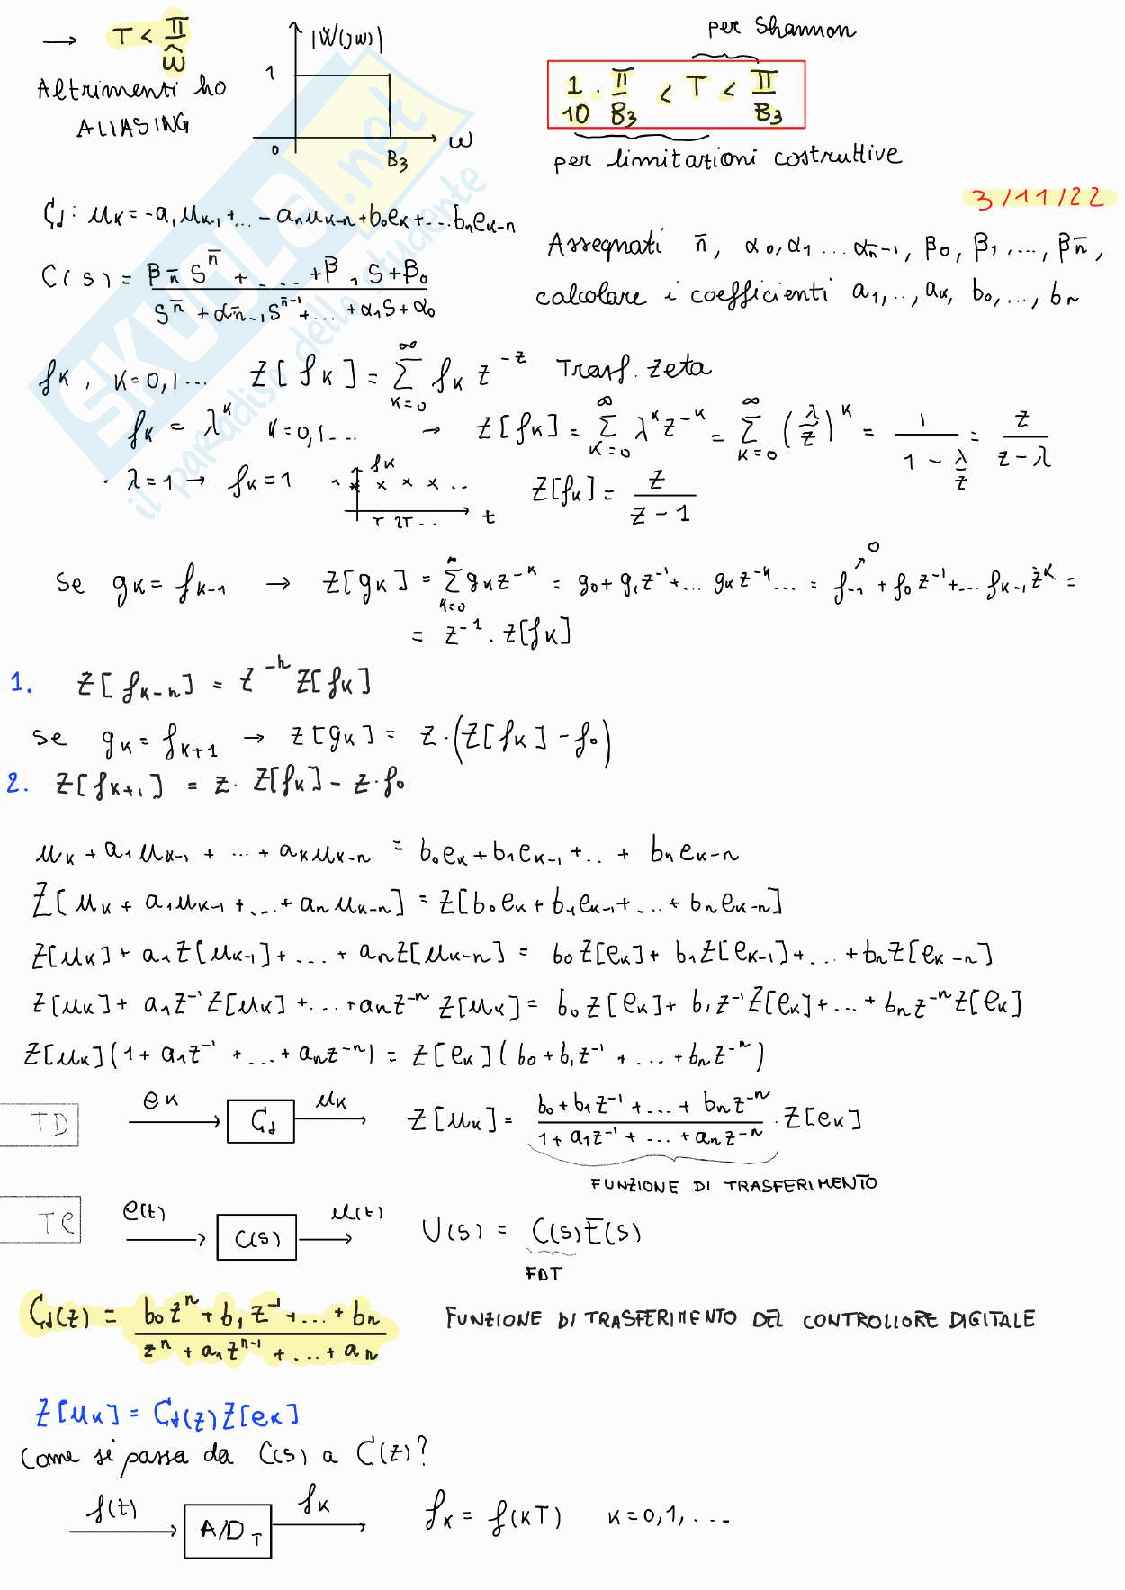 → T < π/ω̂
Altrimenti ho
ALIASING
|W(jω)|
1
0 B₃ ω
per Shannon
1/10 · π/B₃ < T < π/B₃
per limitazioni costruttive
3/11/22
C_d: u_k = -a₁u_{k-1} + ... - a_n u_{k-n} + b₀e_k + ... b_n e_{k-n}
C(s) = (β_n̄ s^n̄ + ... + β₁s + β₀) / (s^n̄ + α_{n̄-1}s^{n̄-1} + ... + α₁s + α₀)
Assegnati n̄, α₀, α₁ ... α_{n̄-1}, β₀, β₁, ..., β_n̄,
calcolare i coefficienti a₁, .., a_k, b₀, ..., b_n
f_k, k=0,1... Z[f_k] = Σ_{k=0}^∞ f_k z^{-z} Trasf. Zeta
f_k = λ^k k=0,1... → Z[f_k] = Σ_{k=0}^∞ λ^k z^{-k} = Σ_{k=0}^∞ (λ/z)^k = 1/(1 - λ/z) = z/(z-λ)
· λ=1 → f_k=1 1 f_k x x x x .. T 2T .. t Z[f_k] = z/(z-1)
Se g_k = f_{k-1} → Z[g_k] = Σ_{k=0}^∞ g_k z^{-k} = g₀ + g₁z^{-1} + ... g_k z^{-k} ... = f_{-1} ↗0 + f₀z^{-1} + ... f_{k-1} z^{-k} =
= z^{-1} · Z[f_k]
1. Z[f_{k-n}] = z^{-n} Z[f_k]
Se g_k = f_{k+1} → Z[g_k] = z·(Z[f_k] - f₀)
2. Z[f_{k+1}] = z· Z[f_k] - z·f₀
u_k + a₁u_{k-1} + ... + a_k u_{k-n} = b₀e_k + b₁e_{k-1} + .. + b_n e_{k-n}
Z[u_k + a₁u_{k-1} + ... + a_n u_{k-n}] = Z[b₀e_k + b₁e_{k-1} + ... + b_n e_{k-n}]
Z[u_k] + a₁Z[u_{k-1}] + ... + a_n Z[u_{k-n}] = b₀Z[e_k] + b₁Z[e_{k-1}] + ... + b_n Z[e_{k-n}]
Z[u_k] + a₁z^{-1}Z[u_k] + ... + a_n z^{-n} Z[u_k] = b₀Z[e_k] + b₁z^{-1}Z[e_k] + ... + b_n z^{-n}Z[e_k]
Z[u_k](1 + a₁z^{-1} + ... + a_n z^{-n}) = Z[e_k](b₀ + b₁z^{-1} + ... + b_n z^{-n})
TD e_k C_d u_k Z[u_k] = (b₀ + b₁z^{-1} + ... + b_n z^{-n}) / (1 + a₁z^{-1} + ... + a_n z^{-n}) · Z[e_k]
FUNZIONE DI TRASFERIMENTO
TC e(t) C(s) u(t) U(s) = C(s)E(s)
FDT
C_d(z) = (b₀z^n + b₁z^{-1} + ... + b_n) / (z^n + a₁z^{n-1} + ... + a_n) FUNZIONE DI TRASFERIMENTO DEL CONTROLLORE DIGITALE
Z[u_k] = C_d(z)Z[e_k]
Come si passa da C(s) a C(z)?
f(t) A/D_T f_k f_k = f(kT) k=0,1,...
SKUOLA.net
il paradiso dello studente